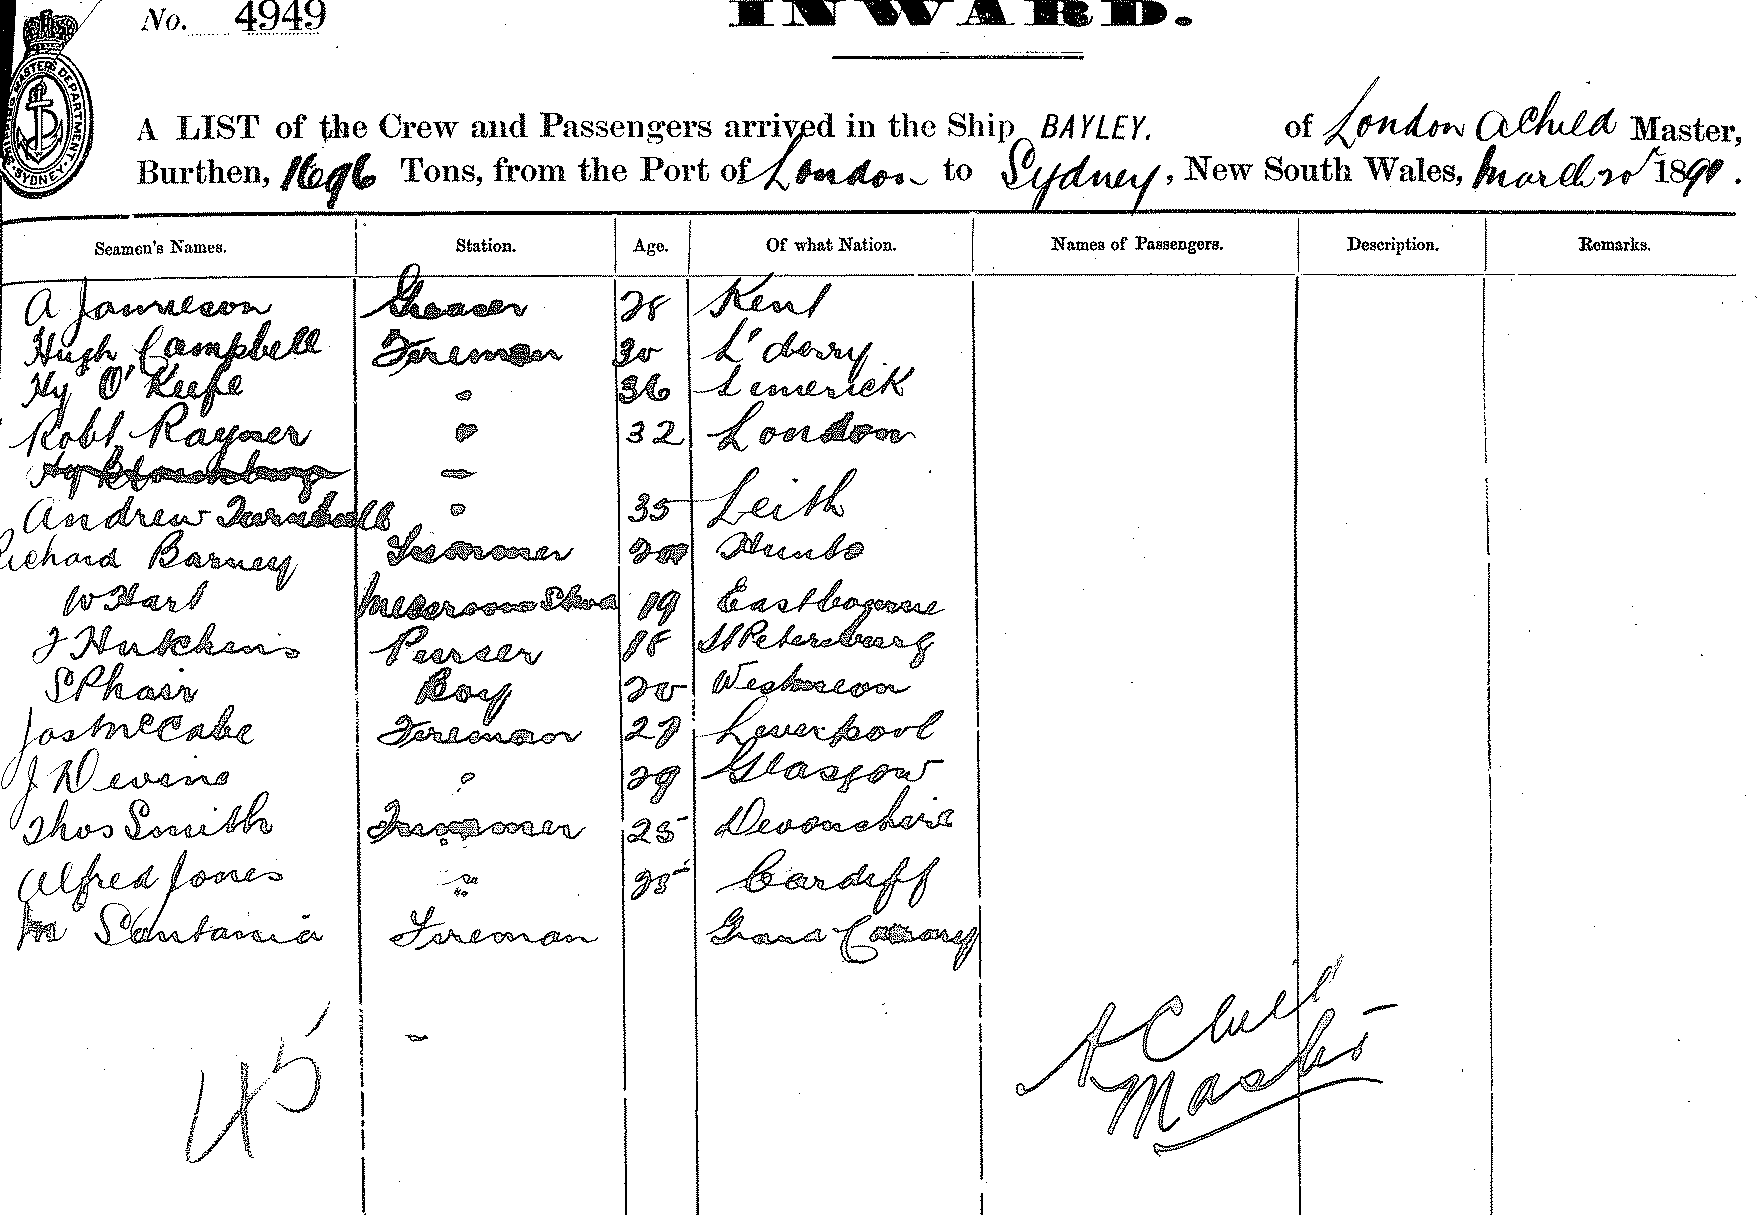 No. 4949
INWARD.
A LIST of the Crew and Passengers arrived in the Ship BAYLEY. of London A Child Master,
Burthen, 1696 Tons, from the Port of London to Sydney, New South Wales, March 20 1890.
Seamen's Names. Station. Age. Of what Nation. Names of Passengers. Description. Remarks.
A Jamieson Greaser 28 Kent
Hugh Campbell Fireman 30 L'derry
Hy O'Keefe " 36 Limerick
Robt Rayner " 32 London
Hy
Andrew Turnbull " 35 Leith
Richard Barney Trimmer 20 Hunts
W Hart Messroom Stwd 19 Eastbourne
J Hutchins Purser 18 St Petersburg
S Phair Boy 20
Jas McCabe Fireman 27 Liverpool
J Devine " 29 Glasgow
Thos Smith Trimmer 25 Devonshire
Alfred Jones " 25 Cardiff
M Santania Fireman Grand Canary
45
A Child
Master